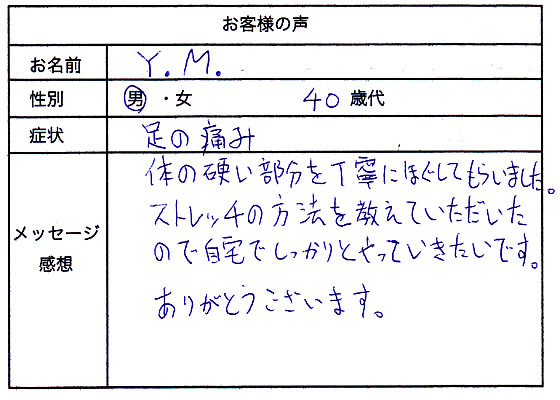 お客様の声
お名前 Y.M.
性別 男・女 40歳代
症状 足の痛み
メッセージ
感想
体の硬い部分を丁寧にほぐしてもらいました。
ストレッチの方法を教えていただいた
ので自宅でしっかりとやっていきたいです。
ありがとうございます。